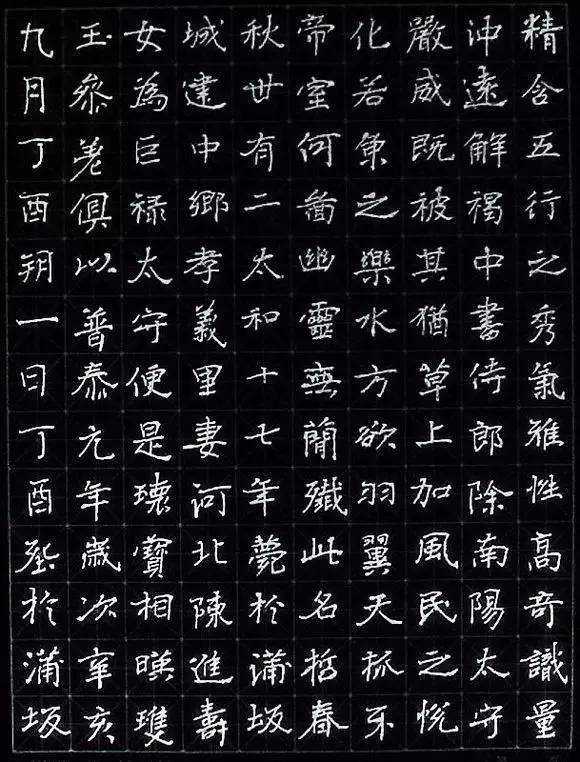 精含五行之秀氣雅性高奇識量
沖遠解褐中書侍郎除南陽太守
嚴威既被其猶草上加風民之悅
化若魚之樂水方欲羽翼天抓牙
帝室何啚幽靈無簡殲此名哲春
秋卅有二太和十七年薨於蒲坂
城建中鄉孝義里妻河北陳進壽
女為巨祿太守便是瓌寶相暎瓊
玉參差俱以普泰元年歲次辛亥
九月丁酉朔一日丁酉葬於蒲坂